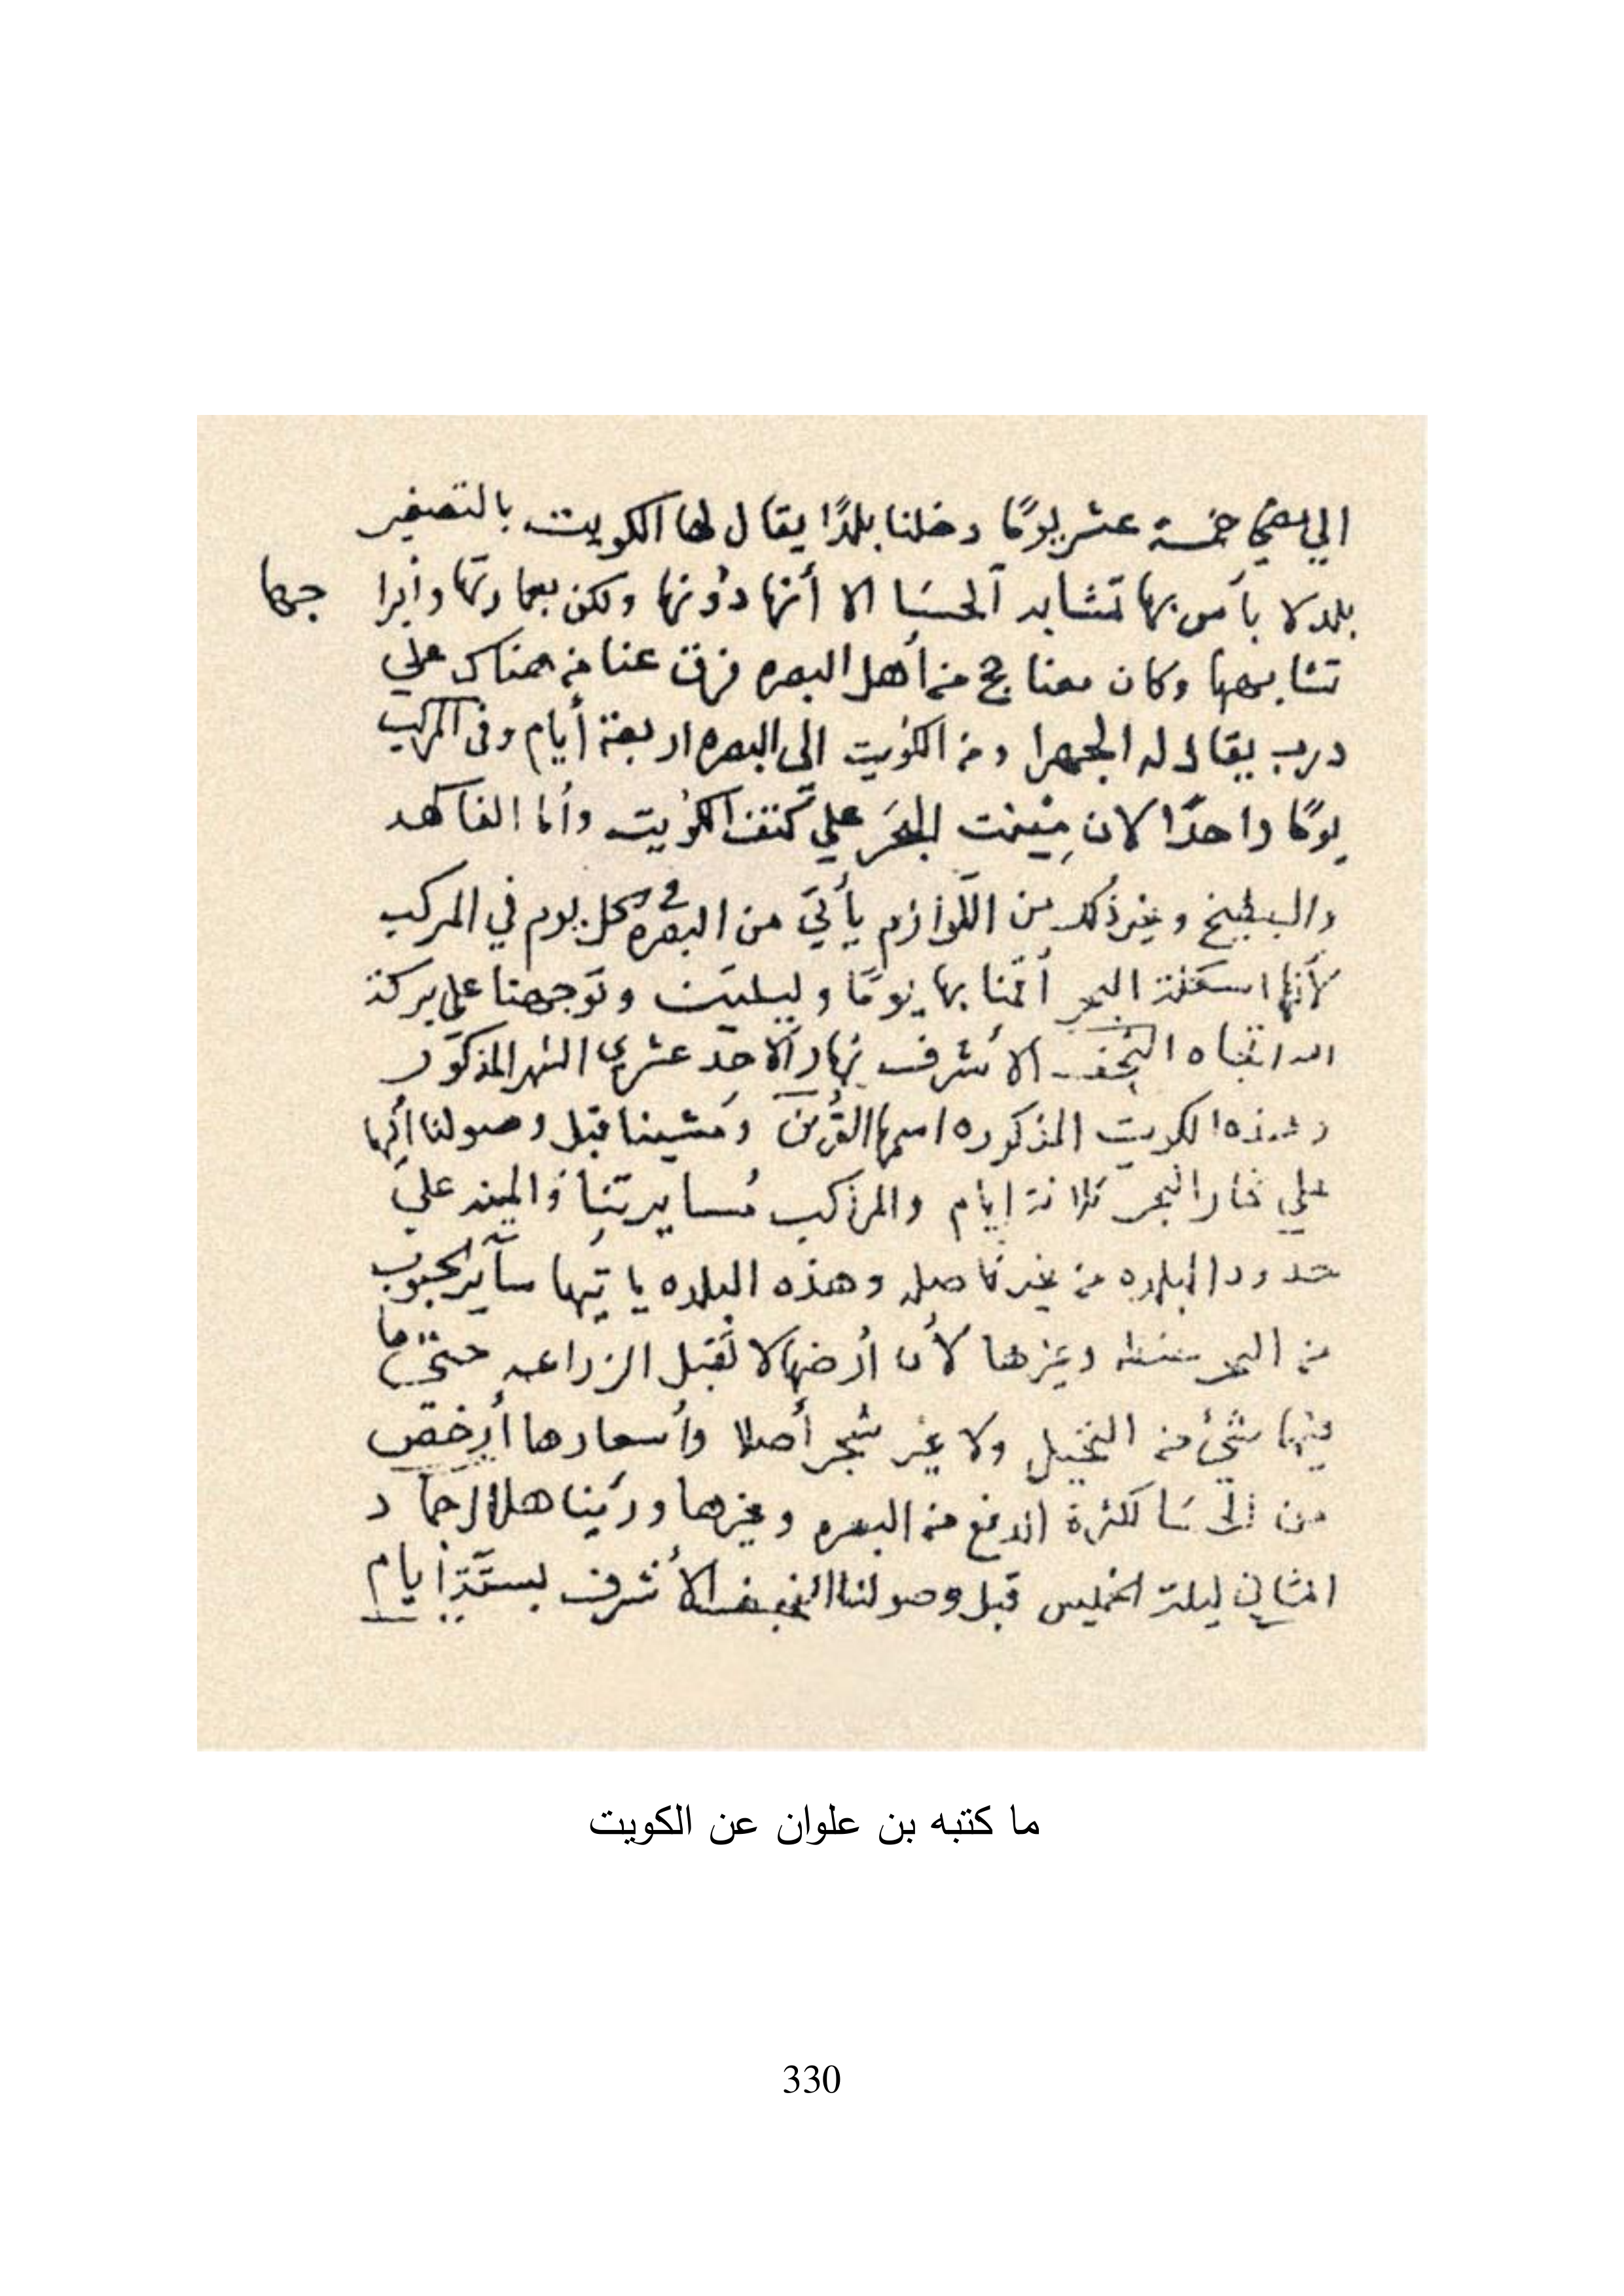 الي مضي خمسة عشر يومًا دخلنا بلدًا يقال لها الكويت بالتصغير
بلد لا بأس بها تشابه الحسَا الا أنها دُونها ولكن بعمارتها وأبرا جها
تشابهها وكان معنا حج من أهل البصره فرق عنا من هناك علي
درب يقال له الجهرا ومن الكُويت الى البصره اربعة أيام وفى المركب
يومًا واحدًا لان مِيْنت البحَر علي كَتف الكُويت وأما الفاكهه
والبطيخ وغير ذلك من اللّوازم يأتي من البصره في كل يوم في المركب
لأنها اسكلة البحر أقمنا بها يومًا وليلتين وتوجهنا على بركة
الله اتجاه النجف الأشرف نهار الأحد عشري الشهر المذكور
وهذه الكويت المذكوره اسمها القُرين ومشينا قبل وصولنا إليها
علي البحر ثلاثة ايام والمراكب مُسايرتنا والمينه علي
حدود البلده من غير فاصله وهذه البلده ياتيها سآير الحبوب
من البحر حنطه وغيرها لأن أرضها لا تَقبل الزراعه حتى ما
فيها شيئ من النخيل ولا غير شجر أصلا وأسعارها أرخص
من الحسَا لكثرة الدفع من البصره وغيرها ورئينا هلال جماد
الثاني ليلة الخميس قبل وصولنا النجف الأشرف بستّة أيام
ما كتبه بن علوان عن الكويت
330